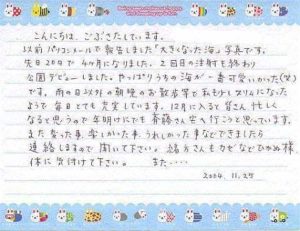 こんにちは。ごぶさたしています。
以前パソコンメールで報告しました「大きくなった海」写真です。
先日20日で4ヶ月になりました。2回目の注射も終わり
公園デビューしました。やっぱりうちの海が一番可愛いかった(笑)
です。雨の日以外の朝晩のお散歩で私も少しスリムになった
ようで毎日とても充実しています。12月に入ると皆さん忙しく
なると思うので年明けにでも斉藤さん宅へ行こうと思っています。
また変った事、楽しかった事、うれしかった事などできましたら
連絡しますので聞いて下さい。緒方さんもカゼなどひかぬ様、
体に気付けて下さい。 また・・・・
2004.11.25